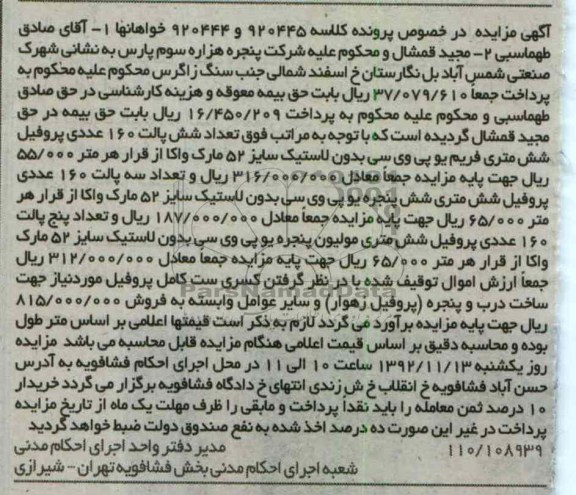 آگهی مزایده در خصوص پرونده کلاسه ۹۲۰۴۴۵ و ۹۲۰۴۴۴ خواهانها ۱- آقای صادق
طهماسبی ۲- مجید قمشال و محکوم علیه شرکت پنجره هزاره سوم پارس به نشانی شهرک
صنعتی شمس آباد بل نگارستان خ اسفند شمالی جنب سنگ زاگرس محکوم علیه محکوم به
پرداخت جمعاً ۳۷/۰۷۹/۶۱۰ ریال بابت حق بیمه معوقه و هزینه کارشناسی در حق صادق
طهماسبی و محکوم علیه محکوم به پرداخت ۱۶/۴۵۰/۲۰۹ ریال بابت حق بیمه در حق
مجید قمشال گردیده است که با توجه به مراتب فوق تعداد شش پالت ۱۶۰ عددی پروفیل
شش متری فریم یو پی وی سی بدون لاستیک سایز ۵۲ مارک واکا از قرار هر متر ۵۵/۰۰۰
ریال جهت پایه مزایده جمعاً معادل ۳۱۶/۰۰۰/۰۰۰ ریال و تعداد سه پالت ۱۶۰ عددی
پروفیل شش متری شش پنجره یو پی وی سی بدون لاستیک سایز ۵۲ مارک واکا از قرار هر
متر ۶۵/۰۰۰ ریال جهت پایه مزایده جمعاً معادل ۱۸۷/۰۰۰/۰۰۰ ریال و تعداد پنج پالت
۱۶۰ عددی پروفیل شش متری مولیون پنجره یو پی وی سی بدون لاستیک سایز ۵۲ مارک
واکا از قرار هر متر ۶۵/۰۰۰ ریال جهت پایه مزایده جمعاً معادل ۳۱۲/۰۰۰/۰۰۰ ریال
جمعاً ارزش اموال توقیف شده با در نظر گرفتن کسری ست کامل پروفیل موردنیاز جهت
ساخت درب و پنجره (پروفیل رهوار) و سایر عوامل وابسته به فروش ۸۱۵/۰۰۰/۰۰۰
ریال جهت پایه مزایده برآورد می گردد لازم به ذکر است قیمتها اعلامی بر اساس متر طول
بوده و محاسبه دقیق بر اساس قیمت اعلامی هنگام مزایده قابل محاسبه می باشد مزایده
روز یکشنبه ۱۳۹۲/۱۱/۱۳ ساعت ۱۰ الی ۱۱ در محل اجرای احکام فشافویه به آدرس
حسن آباد فشافویه خ انقلاب خ ش زندی انتهای خ دادگاه فشافویه برگزار می گردد خریدار
۱۰ درصد ثمن معامله را باید نقداً پرداخت و مابقی را ظرف مهلت یک ماه از تاریخ مزایده
پرداخت در غیر این صورت ده درصد اخذ شده به نفع صندوق دولت ضبط خواهد گردید
۱۱۰/۱۰۸۹۳۹ مدیر دفتر واحد اجرای احکام مدنی
شعبه اجرای احکام مدنی بخش فشافویه تهران - شیرازی
ParsNamadData